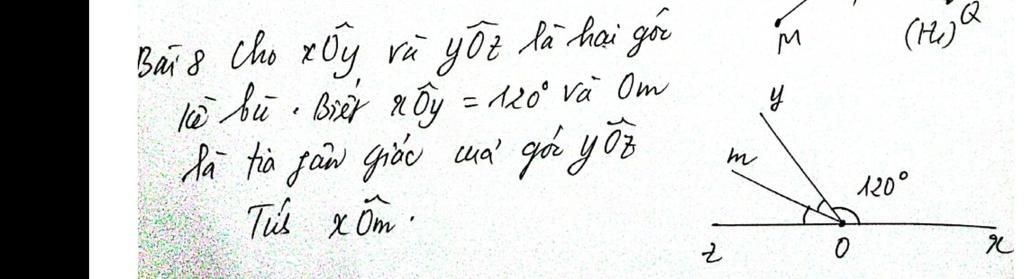 Bài 8 Cho xÔy và yÔz là hai góc
kề bù. Biết xÔy = 120° và Om
là tia phân giác của góc yÔz
Tính xÔm.
M
(H₁) Q
y
m
120°
z
O
x